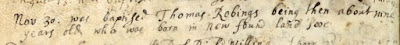 Nov 30. was baptised Thomas Robings being then about nine
years old who was born in new found land